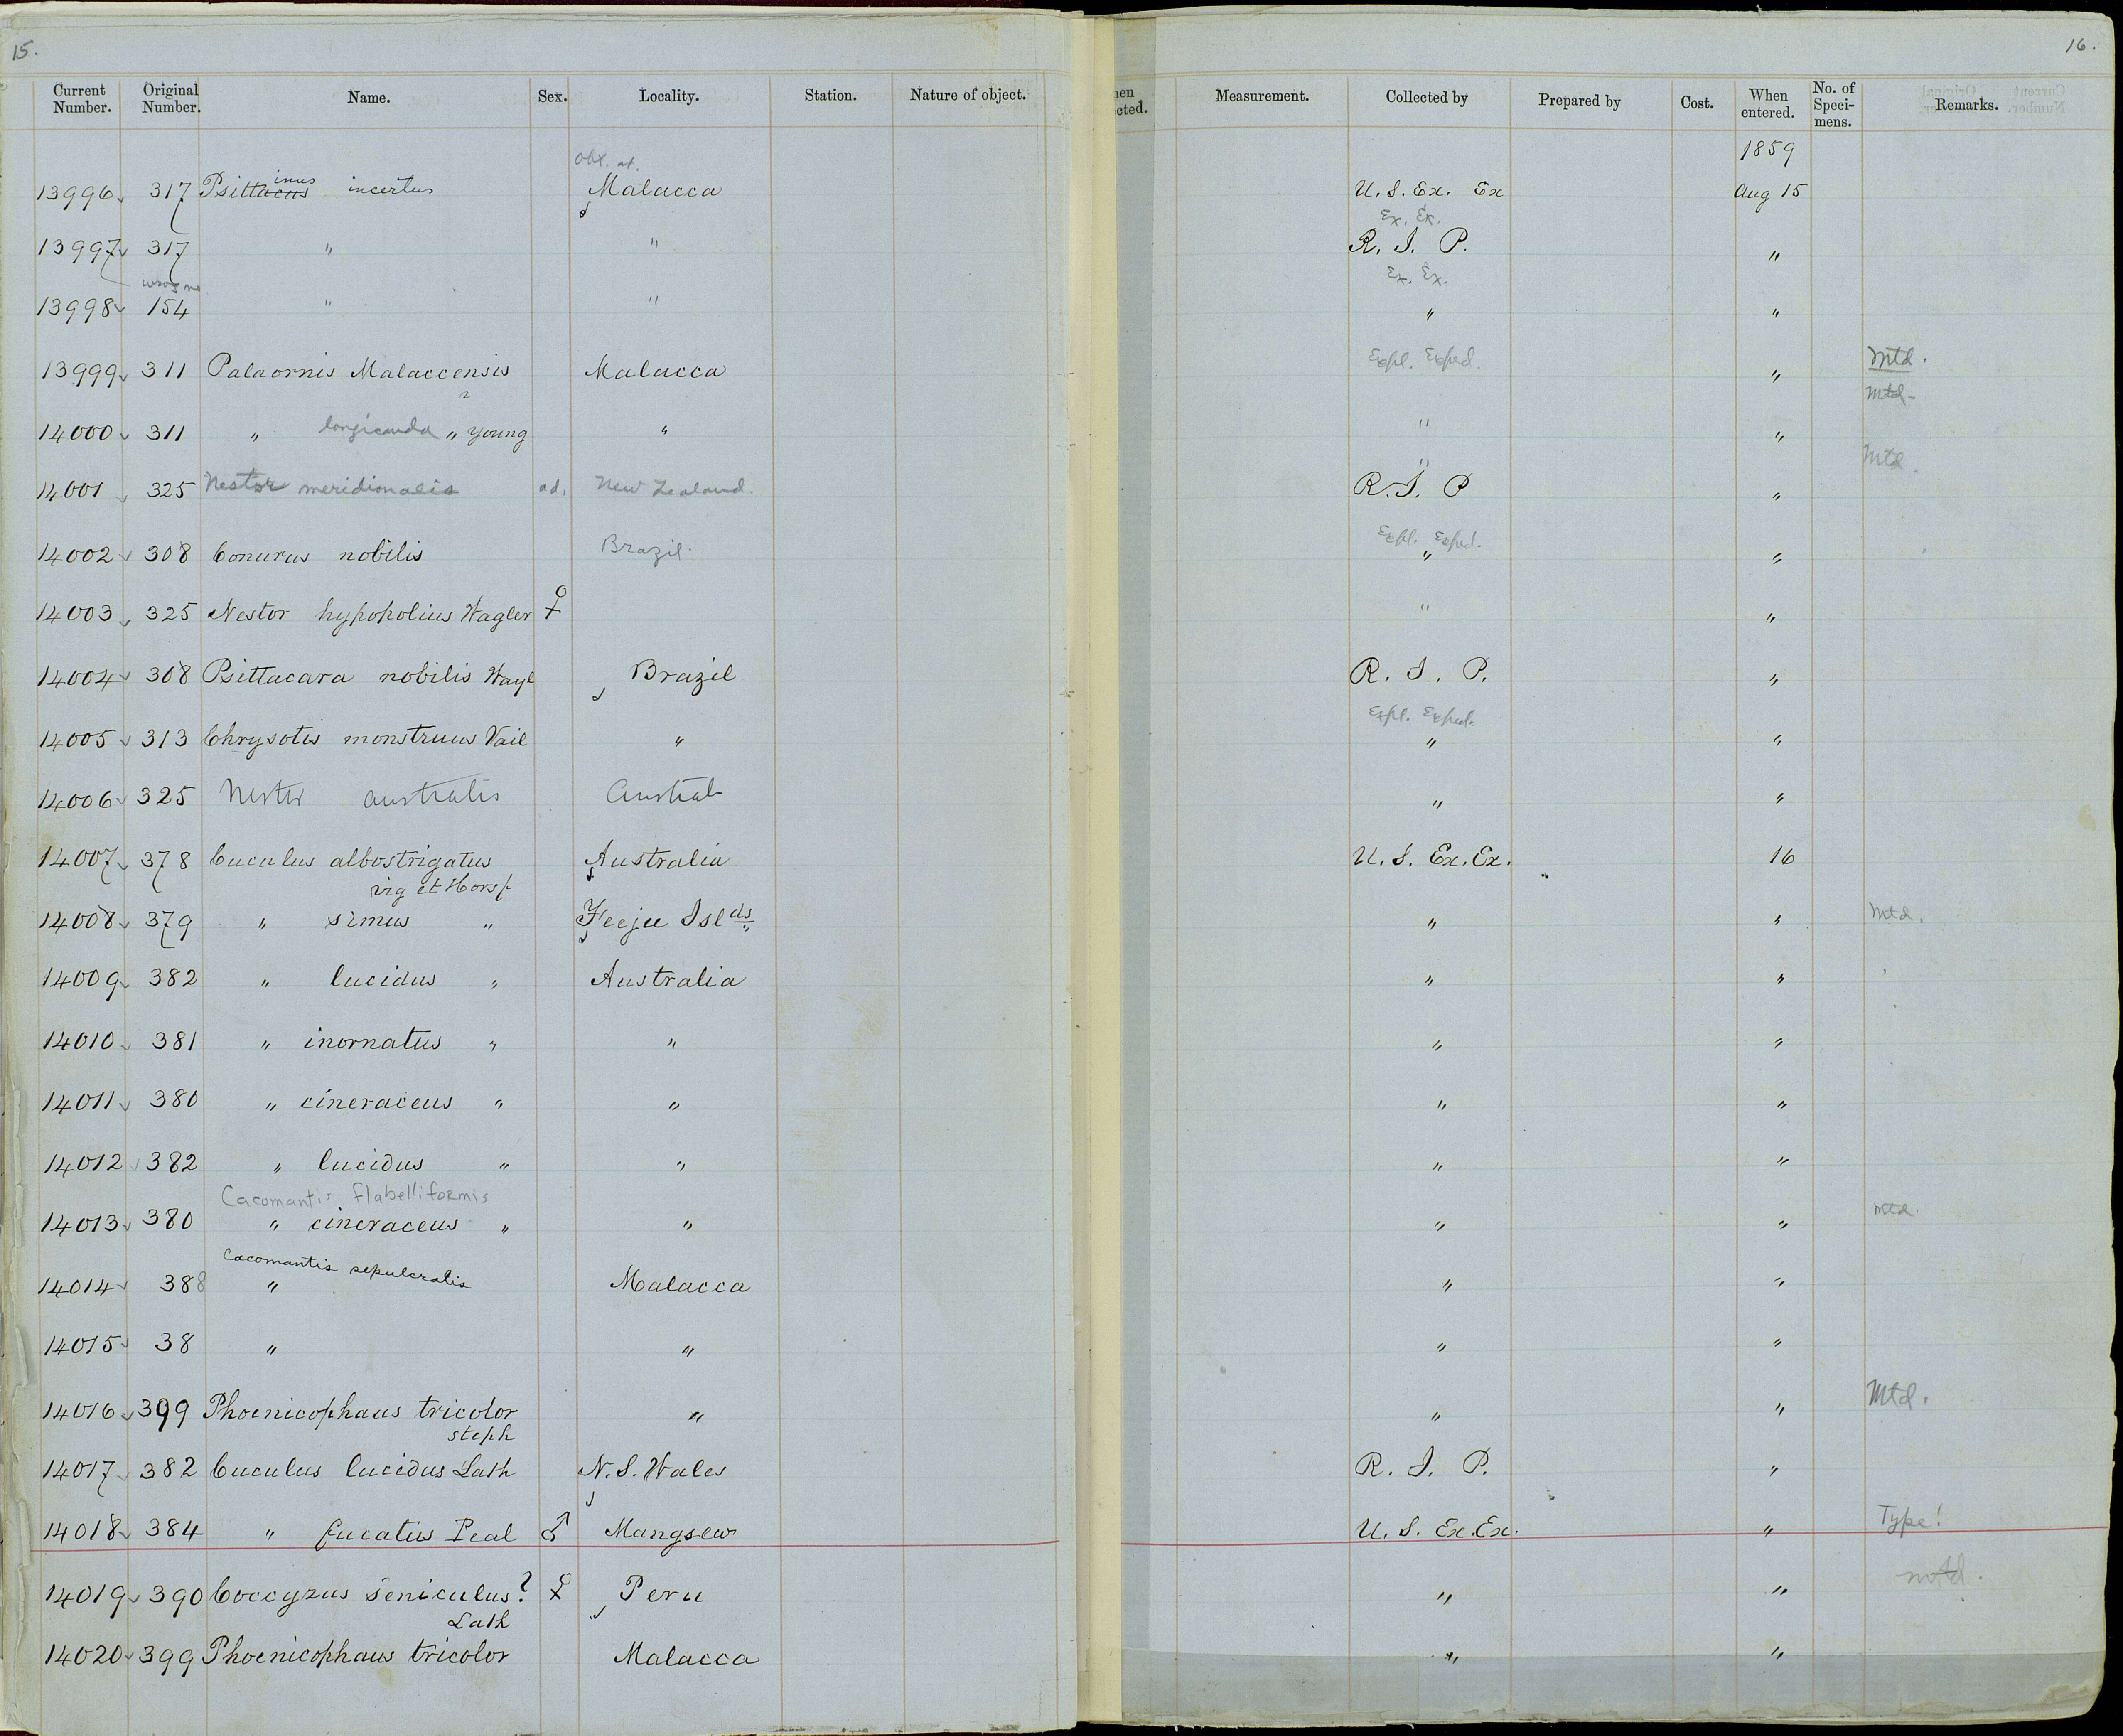 15.
16.
Current Number. Original Number. Name. Sex. Locality. Station. Nature of object. Measurement. Collected by Prepared by Cost. When entered. No. of Specimens. Remarks.
1859
inus
13996 317 Psittacus incertus Malacca U. S. Ex. Ex Aug 15
Ex. Ex.
13997 317 " " R. S. P. "
wrong no Ex. Ex.
13998 154 " " " "
13999 311 Palaornis Malaccensis Malacca Expl. Exped. " Mtd.
Mtd-
14000 311 " longicauda " young " " "
" Mtd.
14001 325 Nestor meridionalis ad. New Zealand. R. S. P "
Expl. Exped.
14002 308 Conurus nobilis Brazil. " "
14003 325 Nestor hypopolius Wagler ♀ " "
14004 308 Psittacara nobilis Wagl Brazil R. S. P. "
Expl. Exped.
14005 313 Chrysotis monstruus Vail " " "
14006 325 Nestor australis Austral " "
14007 378 Cuculus albostrigatus Australia U. S. Ex. Ex. 16
vig et Horsf
14008 379 " simus " Feeje Islds " " Mtd.
14009 382 " lucidus " Australia " "
14010 381 " inornatus " " " "
14011 380 " cineraceus " " " "
14012 382 " lucidus " " " "
Cacomantis flabelliformis
14013 380 " cineraceus " " " " Mtd.
Cacomantis sepulcralis
14014 388 " Malacca " "
14015 38 " " " "
14016 399 Phoenicophaus tricolor " " " Mtd.
steph
14017 382 Cuculus lucidus Lath N. S. Wales R. S. P. "
14018 384 " fucatus Peal ♂ Mangsew U. S. Ex. Ex. " Type!
14019 390 Coccyzus seniculus? ♀ Peru " " mtd.
Lath
14020 399 Phoenicophaus tricolor Malacca " "